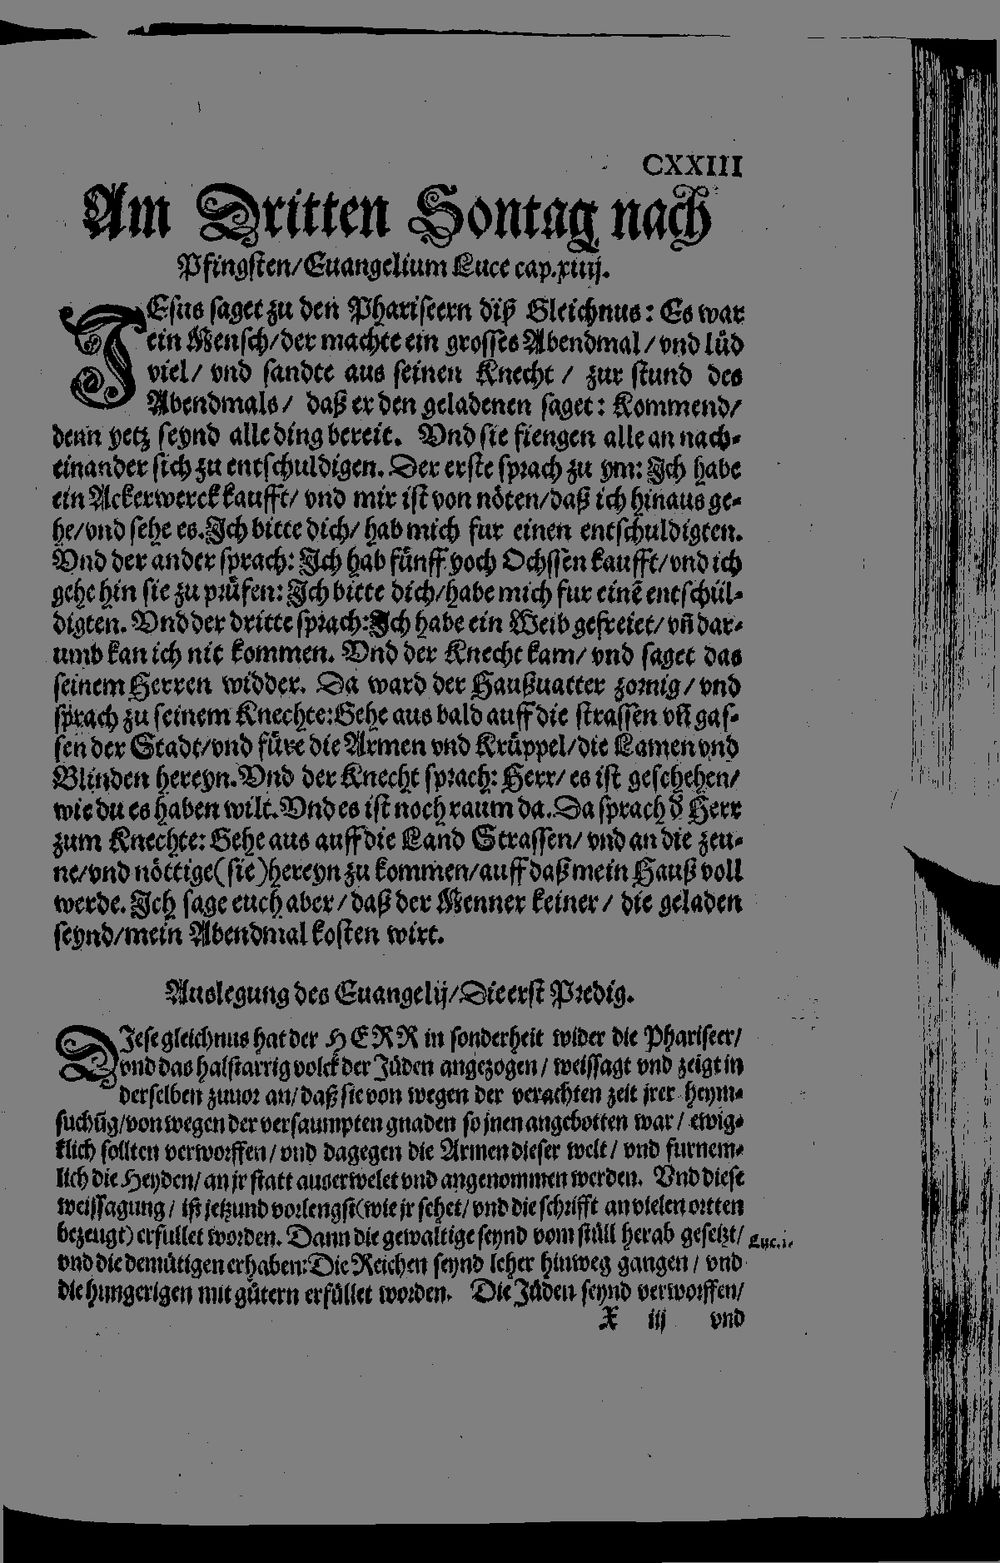 CXXIII
Am Dritten Sontag nach
Pfingsten/Euangelium Luce cap.xiiij.
JEsus saget zu den Phariseern diß Gleichnus: Es war
ein Mensch/der machte ein grosses Abendmal/vnd lůd
viel/ vnd sandte aus seinen Knecht / zur stund des
Abendmals/ daß er den geladenen saget: Kommend/
denn yetz seynd alle ding bereit. Vnd sie fiengen alle an nach-
einander sich zu entschuldigen. Der erste sprach zu ym: Ich habe
ein Ackerwerck kaufft/ vnd mir ist von nöten/daß ich hinaus ge-
he/vnd sehe es.Ich bitte dich/ hab mich fur einen entschuldigten.
Vnd der ander sprach: Ich hab fünff yoch Ochssen kaufft/vnd ich
gehe hin sie zu prüfen: Ich bitte dich/habe mich fur einē entschül-
digten. Vnd der dritte sprach:Ich habe ein Weib gefreiet/ vñ dar-
umb kan ich nit kommen. Vnd der Knecht kam/ vnd saget das
seinem Herren widder. Da ward der Haußuatter zornig/ vnd
sprach zu seinem Knechte:Gehe aus bald auff die strassen vñ gas-
sen der Stadt/vnd füre die Armen vnd Krüppel/die Lamen vnd
Blinden hereyn.Vnd der Knecht sprach: Herr/ es ist geschehen/
wie du es haben wilt.Vnd es ist noch raum da.Da sprach d̕ Herr
zum Knechte: Gehe aus auff die Land Strassen/ vnd an die zeu-
ne/vnd nöttige(sie)hereyn zu kommen/auff daß mein Hauß voll
werde. Ich sage euch aber/ daß der Menner keiner/ die geladen
seynd/mein Abendmal kosten wirt.
Auslegung des Euangelij/Die erst Predig.
DIese gleichnus hat der HERR in sonderheit wider die Phariseer/
vnd das halstarrig volck der Jüden angezogen/ weissagt vnd zeigt in
derselben zuuor an/ daß sie von wegen der verachten zeit jrer heym-
suchūg/von wegen der versaumpten gnaden so jnen angebotten war/ ewig-
klich sollten verworffen/ vnd dagegen die Armen dieser welt/ vnd furnem-
lich die Heyden/ an jr statt auserwelet vnd angenommen werden. Vnd diese
weissagung/ ist jetzund vorlengst(wie jr sehet/ vnd die schrifft an vielen ortten
bezeugt) erfullet worden. Dann die gewaltige seynd vom stüll herab gesetzt/ Luc.i.
vnd die demütigen erhaben:Die Reichen seynd leher hinweg gangen/ vnd
die hungerigen mit gütern erfüllet worden. Die Jüden seynd verworffen/
X iij vnd